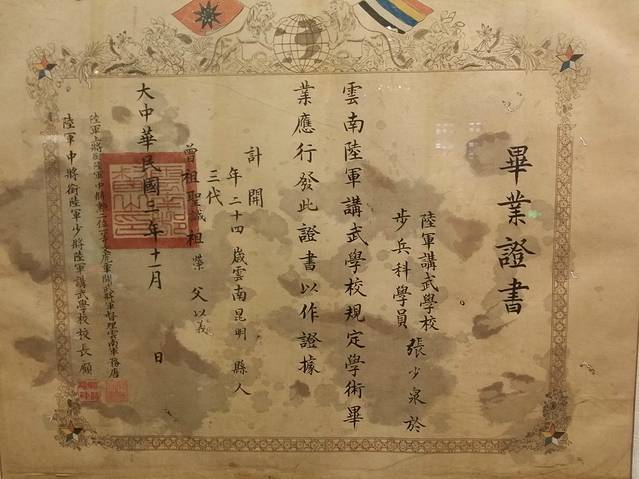 畢業證書
陸軍講武學校
步兵科學員 張少泉於
雲南陸軍講武學校規定學術畢
業應行發此證書以作證據
計開
年二十四歲雲南昆明縣人
三代
曾祖聖誠 祖榮 父以義
大中華民國三年十一月 日
陸軍上將銜陸軍中將 開武將軍督理雲南軍務唐
陸軍中將銜陸軍少將陸軍講武學校校長顧